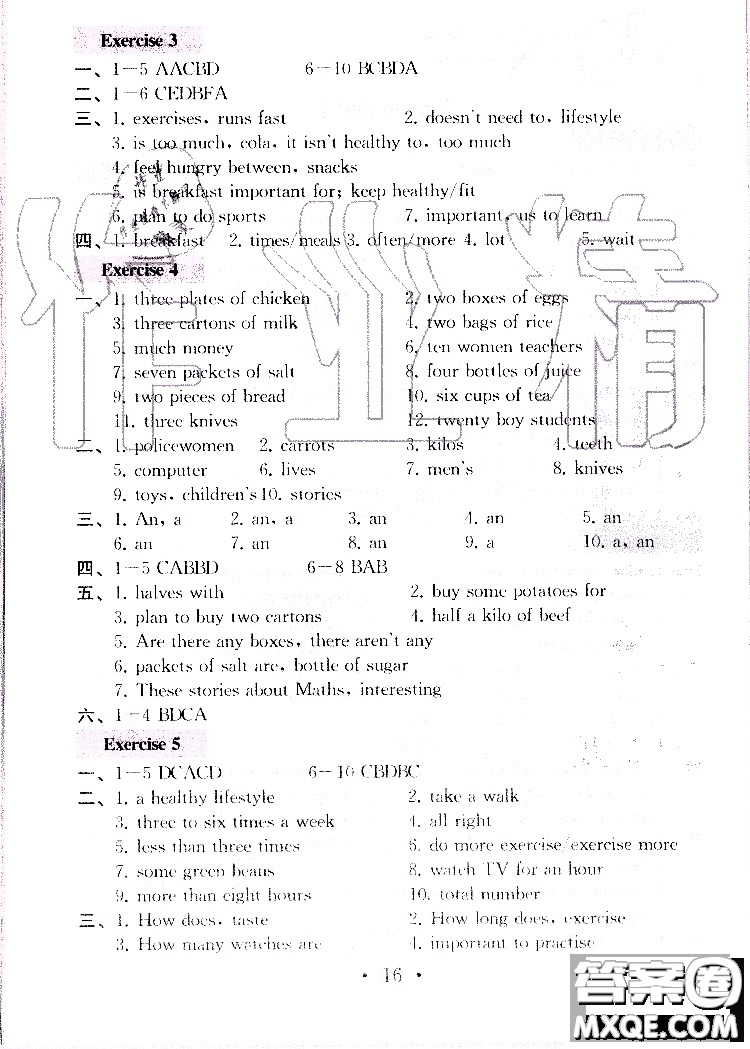 Exercise 3
一、1—5 AACBD 6—10 BCBDA
二、1—6 CEDBFA
三、1. exercises, runs fast 2. doesn't need to, lifestyle
3. is too much, cola, it isn't healthy to, too much
4. feel hungry between, snacks
5. is breakfast important for; keep healthy/fit
6. plan to do sports 7. important, us to learn
四、1. breakfast 2. times/meals 3. often/more 4. lot 5. wait
Exercise 4
一、1. three plates of chicken 2. two boxes of eggs
3. three cartons of milk 4. two bags of rice
5. much money 6. ten women teachers
7. seven packets of salt 8. four bottles of juice
9. two pieces of bread 10. six cups of tea
11. three knives 12. twenty boy students
二、1. policewomen 2. carrots 3. kilos 4. teeth
5. computer 6. lives 7. men's 8. knives
9. toys, children's 10. stories
三、1. An, a 2. an, a 3. an 4. an 5. an
6. an 7. an 8. an 9. a 10. a, an
四、1—5 CABBD 6—8 BAB
五、1. halves with 2. buy some potatoes for
3. plan to buy two cartons 4. half a kilo of beef
5. Are there any boxes, there aren't any
6. packets of salt are, bottle of sugar
7. These stories about Maths, interesting
六、1—4 BDCA
Exercise 5
一、1—5 DCACD 6—10 CBDBC
二、1. a healthy lifestyle 2. take a walk
3. three to six times a week 4. all right
5. less than three times 6. do more exercise/exercise more
7. some green beans 8. watch TV for an hour
9. more than eight hours 10. total number
三、1. How does, taste 2. How long does, exercise
3. How many watches are 4. important to practise
· 16 ·
答案圈
MXQE.COM